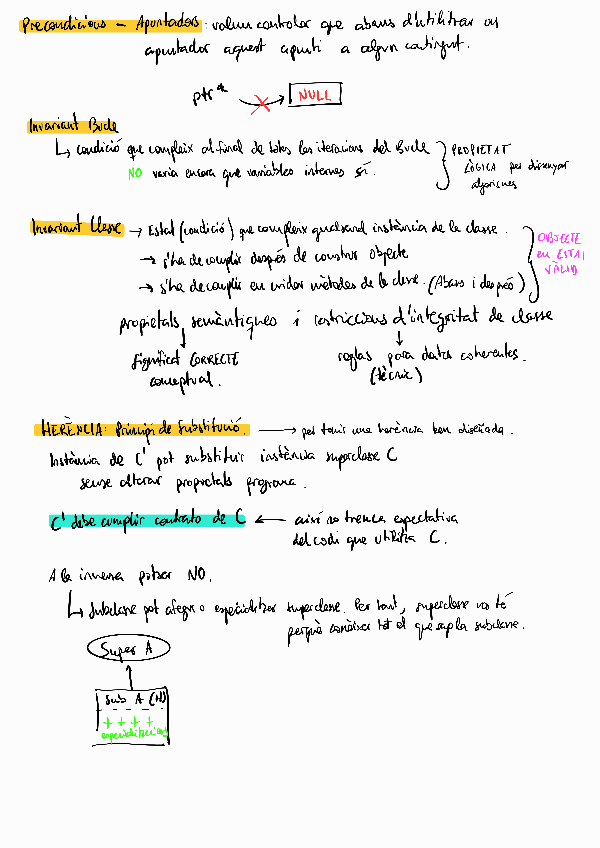 Precondicions - Apuntadors: volem controlar que abans d'utilitzar un
apuntador aquest apunti a algun contingut.
ptr*
NULL
Invariant Bucle
↳ condició que compleix al final de totes les iteracions del Bucle
NO varia encara que variables internes sí.
PROPIETAT
LÒGICA per dissenyar
algorismes
Invariant Classe → Estat (condició) que compleix qualsevol instància de la classe.
→ s'ha de complir després de construir objecte
→ s'ha de complir en cridar mètodes de la classe. (Abans i després)
OBJECTE
EN ESTAT
VÀLID
propietats semàntiques i restriccions d'integritat de classe
significat CORRECTE
conceptual.
reglas para datos coherentes.
(tècnic)
HERÈNCIA: Principi de Substitució. → per tenir una herència ben diseñada.
Instància de C' pot substituir instància superclasse C
sense alterar propietats programa.
C' debe cumplir contrato de C ← així no trenca expectativa
del codi que utilitza C.
A la inversa potser NO.
↳ Subclasse pot afegir o especialitzar superclasse. Per tant, superclasse no té
perquè conèixer tot el que sap la subclasse.
Super A
Sub A (H)
+ + + +